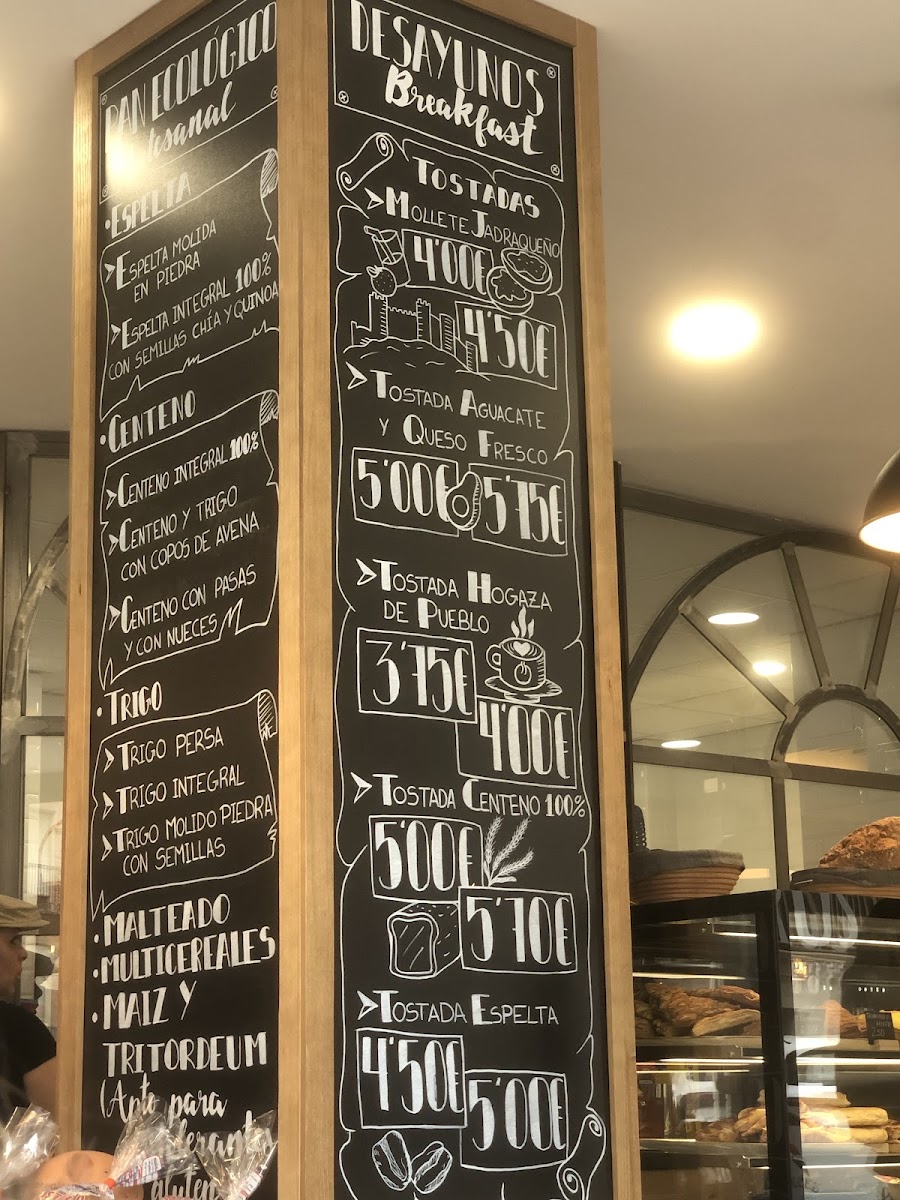 PAN ECOLÓGICO
· ESPELTA
ESPELTA MOLIDA
EN PIEDRA
ESPELTA INTEGRAL 100%
CON SEMILLAS CHÍA Y QUINOA
· CENTENO
CENTENO INTEGRAL 100%
CENTENO Y TRIGO
CON COPOS DE AVENA
CENTENO CON PASAS
Y CON NUECES
· TRIGO
TRIGO PERSA
TRIGO INTEGRAL
TRIGO MOLIDO PIEDRA
CON SEMILLAS
· MALTEADO
· MULTICEREALES
· MAIZ Y
TRITORDEUM
(Apto para
gluten
DESAYUNOS
Breakfast
TOSTADAS
MOLLETE JADRAQUEÑO
4'00€
4'50€
TOSTADA AGUACATE
Y QUESO FRESCO
5'00€ 5'75€
TOSTADA HOGAZA
DE PUEBLO
3'75€
4'00€
TOSTADA CENTENO 100%
5'00€
5'70€
TOSTADA ESPELTA
4'50€
5'00€